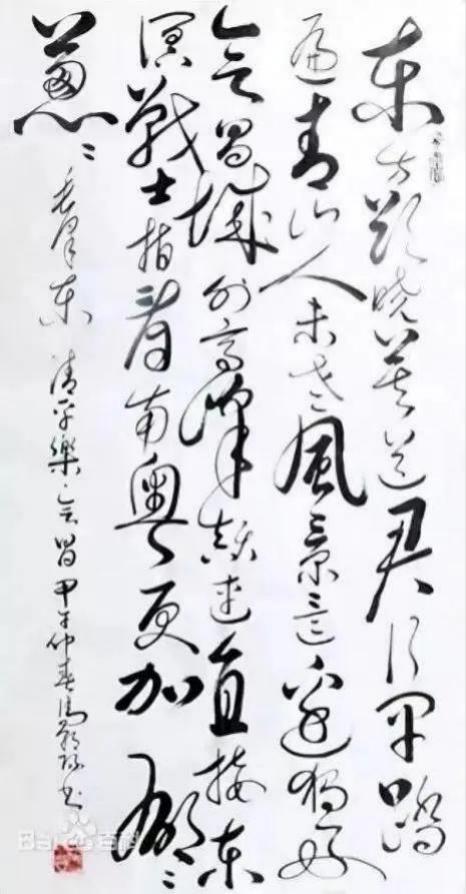 东方欲晓莫道君行早踏
遍青山人未老風景這边独好
会昌城外高峰颠连直接东
溟戰士指看南粤更加郁々
葱々
毛泽东 清平樂·会昌 甲午仲春 书
Bai 百科